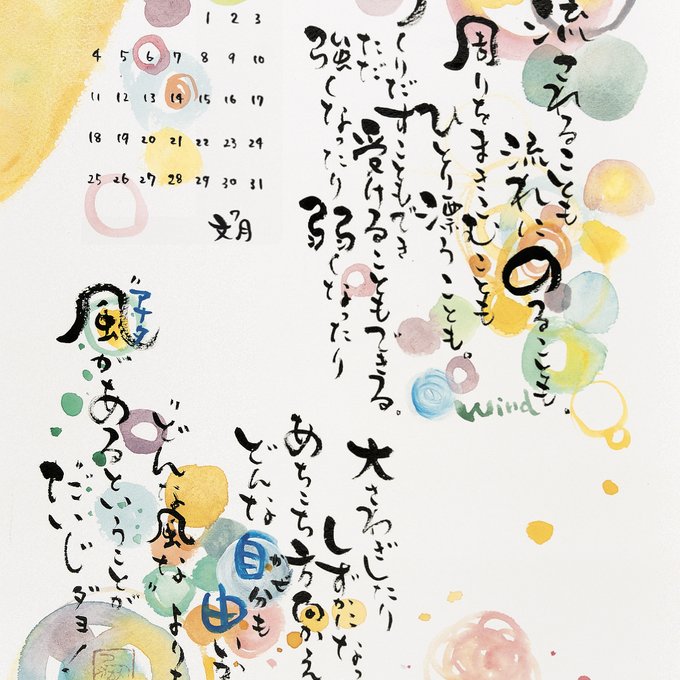 流されることも
流れにのることも。
周りをまきこむことも
ひとり漂うことも。
くりだすこともでき
受けることもできる。
ただ
強くなったり弱くなったり
wind
1 2 3
4 5 6 7 8 9 10
11 12 13 14 15 16 17
18 19 20 21 22 23 24
25 26 27 28 29 30 31
7
文月
大さわぎしたり
しずかになっ
あちこち方向かえ
どんな自分も
かぜ
自由
"どんな風な"より
"風があるということが
アナタ
だいじダヨ!